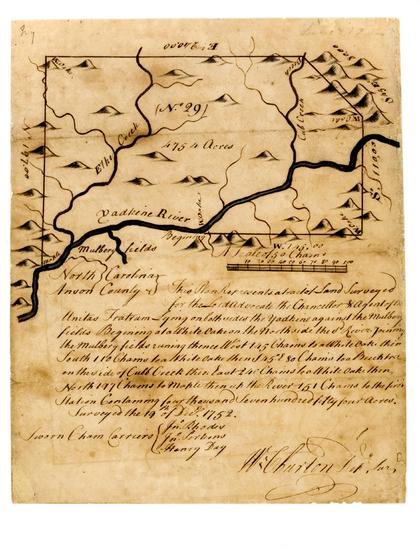 E 240.00
S 45 E 80.00
Mark.
N 177.00
Elke Creek
[No. 29]
4754 Acres
Cub Creek
S 110.00
Yadkine River
Mulberry fields
Begining
W 145.00
A Scale of 50 Chains
North Carolina
Anson County
This Plan Represents a tract of Land Surveyed
for the Advocate the Chancellor & Agent of the
Unitas Fratrum Lying on both sides the Yadkine against the Mulberry
fields Begining at a White Oak on the North side the River Joining
the Mulberry fields runing thence West 145 Chains to a White Oak then
South 110 Chains to a White Oak then S 45 E 80 Chains to a Beech tree
on the side of Cubb Creek then East 240 Chains to a White Oak then
North 177 Chains to Maple then up the River 151 Chains to the first
Station Containing four thousand Seven hundred fifty four Acres.
Surveyed the Decr. 1752.
Sworn Chain Carriers
Jno. Rhodes
Henry Day
Wm. Churton